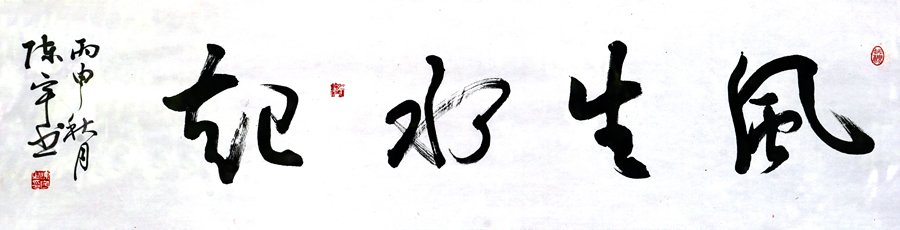 風生水起
丙申秋月
陈宇书